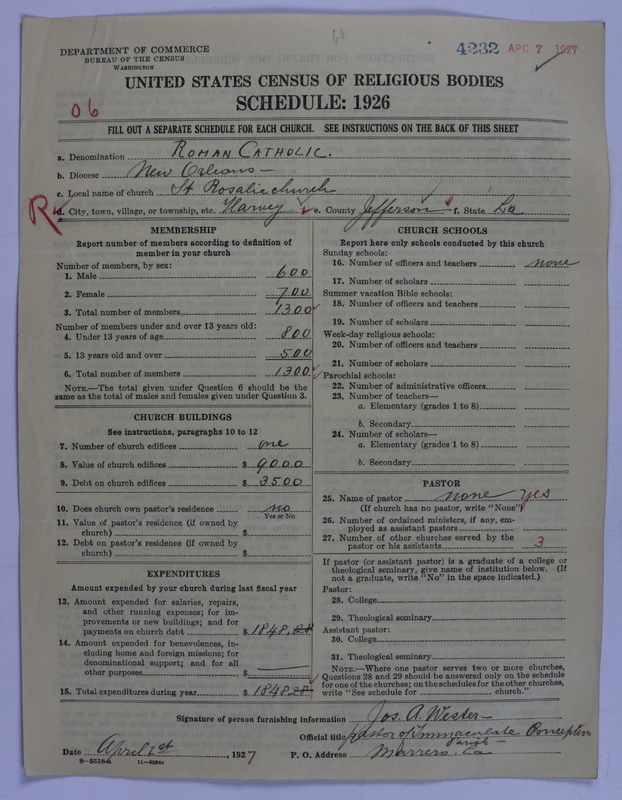 DEPARTMENT OF COMMERCE
BUREAU OF THE CENSUS
WASHINGTON
4232 APR 7 1927
UNITED STATES CENSUS OF RELIGIOUS BODIES
SCHEDULE: 1926
06
FILL OUT A SEPARATE SCHEDULE FOR EACH CHURCH. SEE INSTRUCTIONS ON THE BACK OF THIS SHEET
a. Denomination ROMAN CATHOLIC.
b. Diocese New Orleans
c. Local name of church St Rosalie church
R d. City, town, village, or township, etc. Harvey e. County Jefferson f. State La
MEMBERSHIP
Report number of members according to definition of
member in your church
Number of members, by sex:
1. Male 600
2. Female 700
3. Total number of members 1300
Number of members under and over 13 years old:
4. Under 13 years of age 800
5. 13 years old and over 500
6. Total number of members 1300
NOTE.—The total given under Question 6 should be the
same as the total of males and females given under Question 3.
CHURCH BUILDINGS
See instructions, paragraphs 10 to 12
7. Number of church edifices one
8. Value of church edifices $ 9000
9. Debt on church edifices $ 3500
10. Does church own pastor's residence no
Yes or No
11. Value of pastor's residence (if owned by
church) $
12. Debt on pastor's residence (if owned by
church) $
EXPENDITURES
Amount expended by your church during last fiscal year
13. Amount expended for salaries, repairs,
and other running expenses; for im-
provements or new buildings; and for
payments on church debt $ 1848.28
14. Amount expended for benevolences, in-
cluding home and foreign missions; for
denominational support; and for all
other purposes $
15. Total expenditures during year $ 1848.28
CHURCH SCHOOLS
Report here only schools conducted by this church
Sunday schools:
16. Number of officers and teachers none
17. Number of scholars
Summer vacation Bible schools:
18. Number of officers and teachers
19. Number of scholars
Week-day religious schools:
20. Number of officers and teachers
21. Number of scholars
Parochial schools:
22. Number of administrative officers
23. Number of teachers—
a. Elementary (grades 1 to 8)
b. Secondary
24. Number of scholars—
a. Elementary (grades 1 to 8)
b. Secondary
PASTOR
25. Name of pastor none yes
(If church has no pastor, write "None")
26. Number of ordained ministers, if any, em-
ployed as assistant pastors
27. Number of other churches served by the
pastor or his assistants 3
If pastor (or assistant pastor) is a graduate of a college or
theological seminary, give name of institution below. (If
not a graduate, write "No" in the space indicated.)
Pastor:
28. College
29. Theological seminary
Assistant pastor:
30. College
31. Theological seminary
NOTE.—Where one pastor serves two or more churches,
Questions 28 and 29 should be answered only on the schedule
for one of the churches; on the schedules for the other churches,
write "See schedule for church."
Signature of person furnishing information Jos. A. Wester
Official title pastor of Immaculate Conception
parish
Date April 1st, 1927 P. O. Address Marrero. La
8-5318a